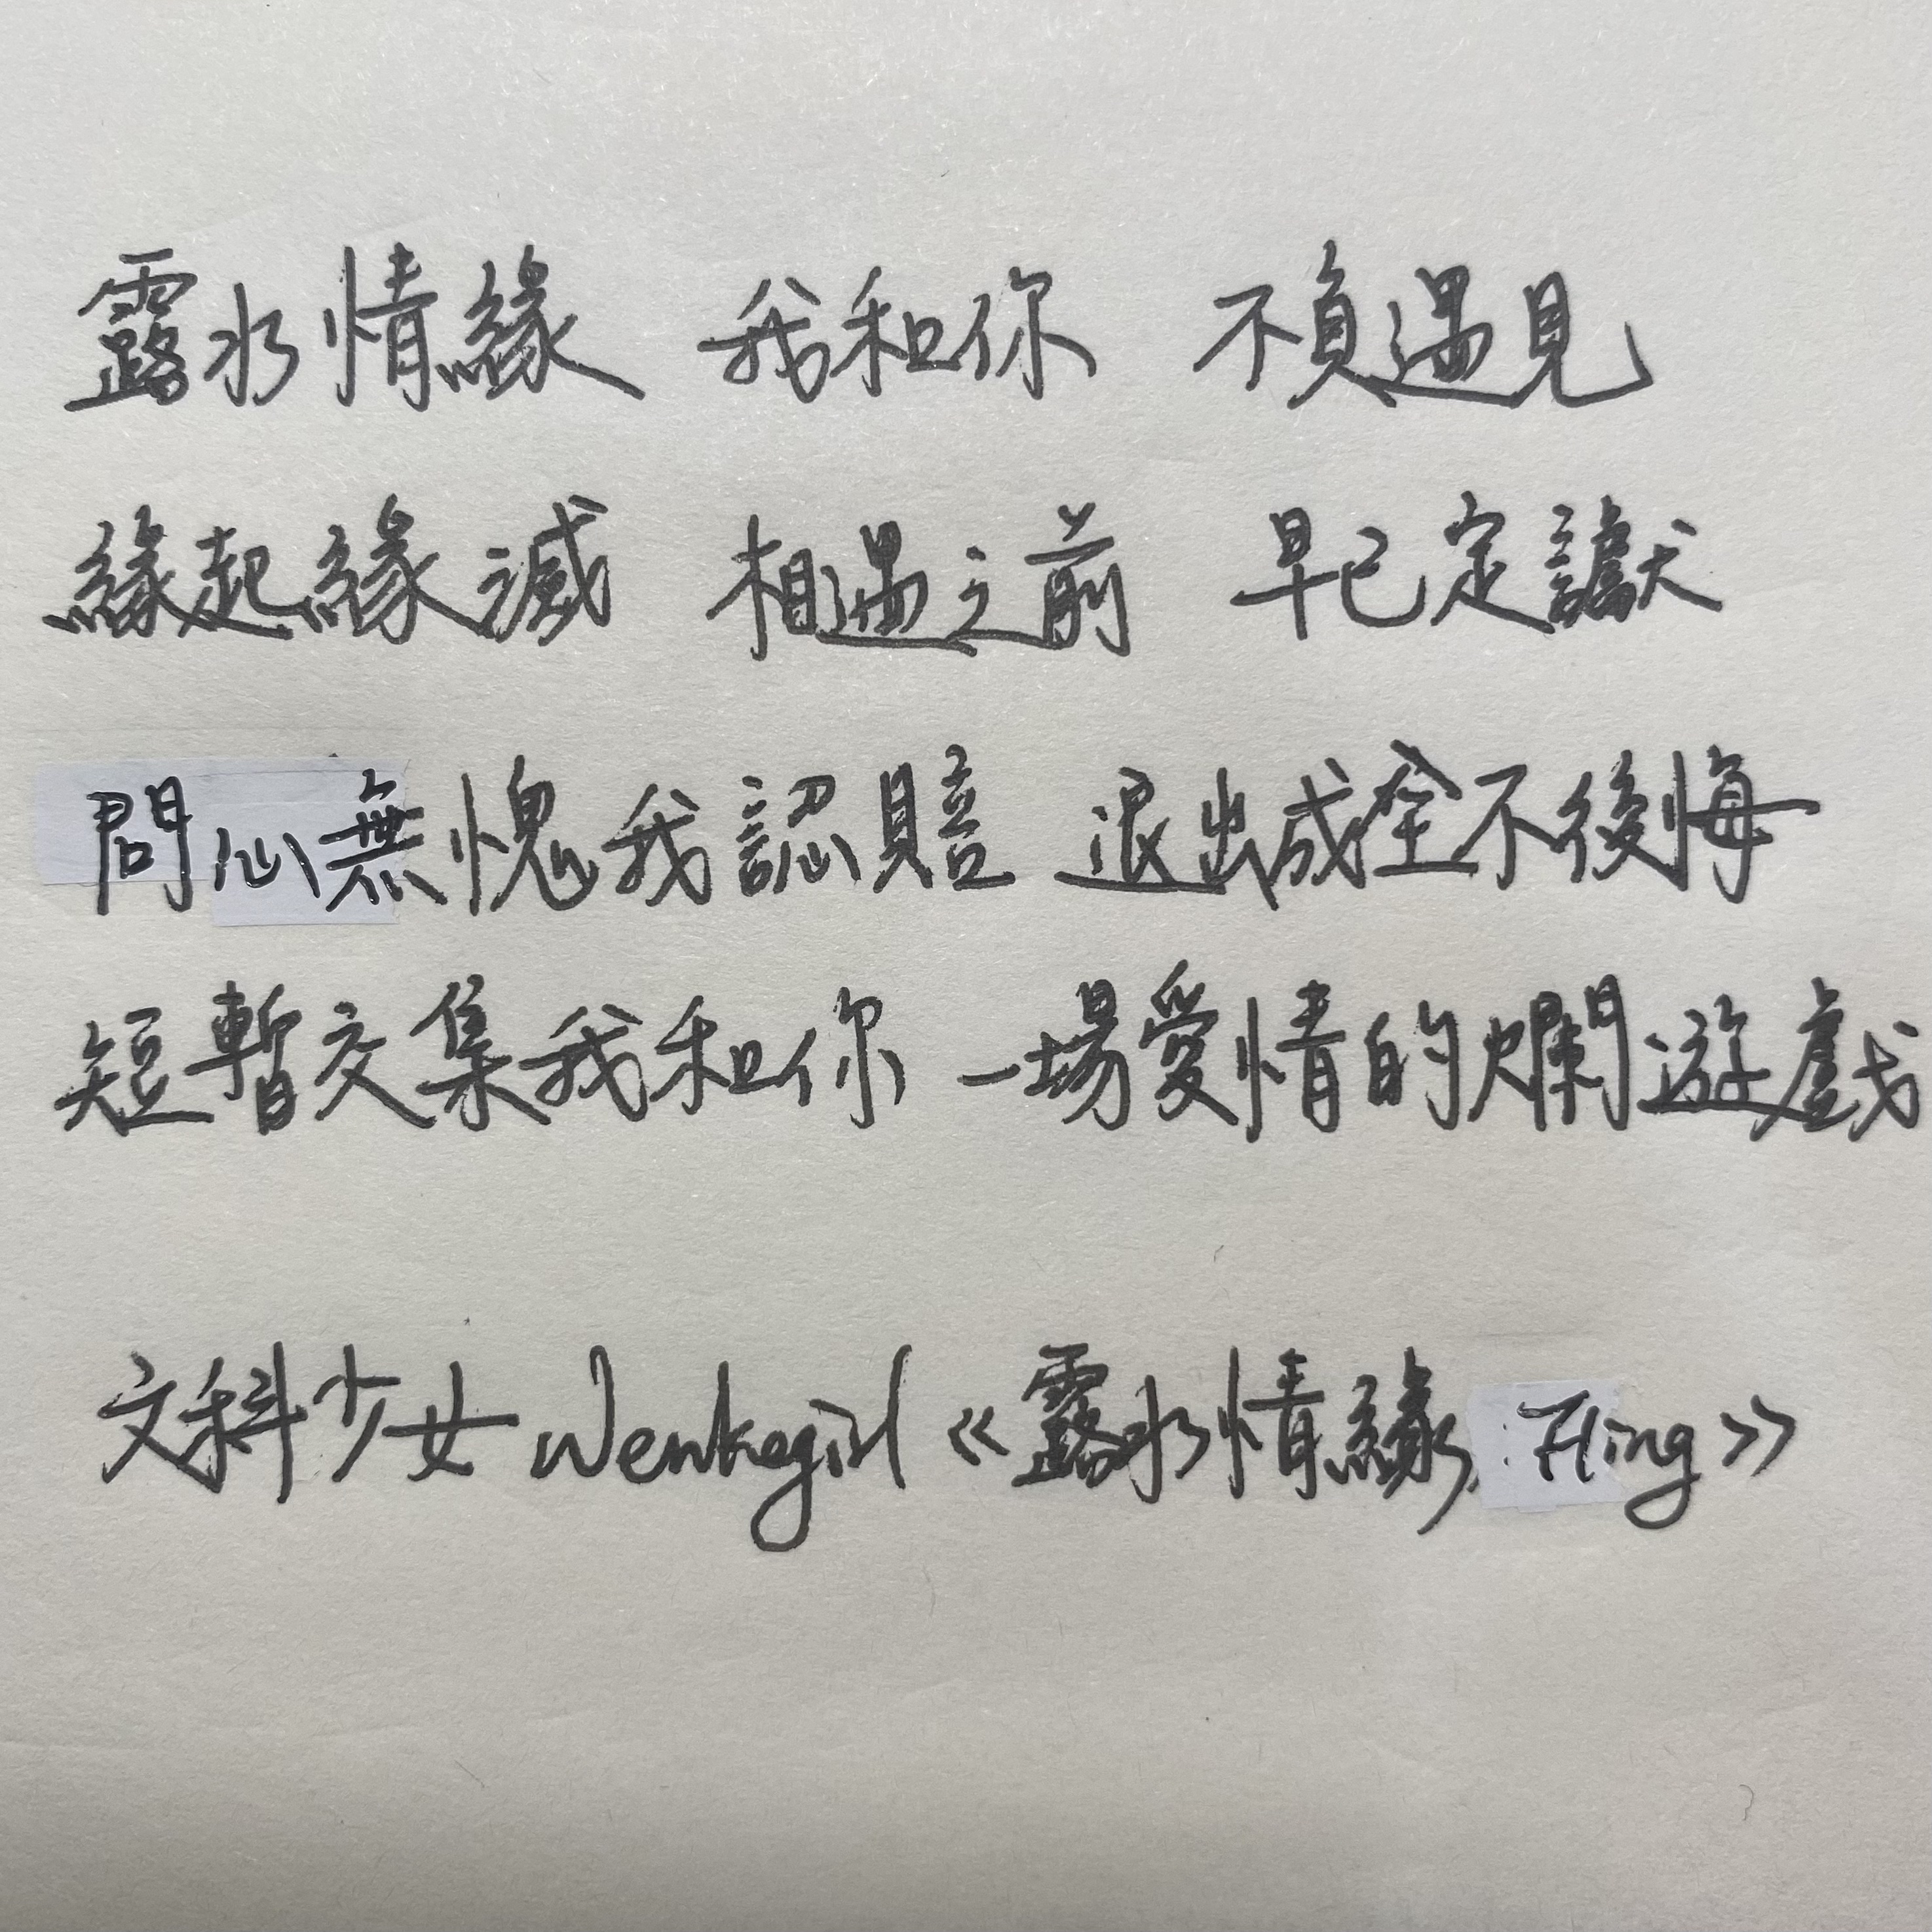 露水情緣 我和你 不負遇見
緣起緣滅 相遇之前 早已定讞
問心無愧我認賠 退出成全不後悔
短暫交集我和你 一場愛情的爛遊戲
文科少女 Wenkegirl 《露水情緣 Fling》